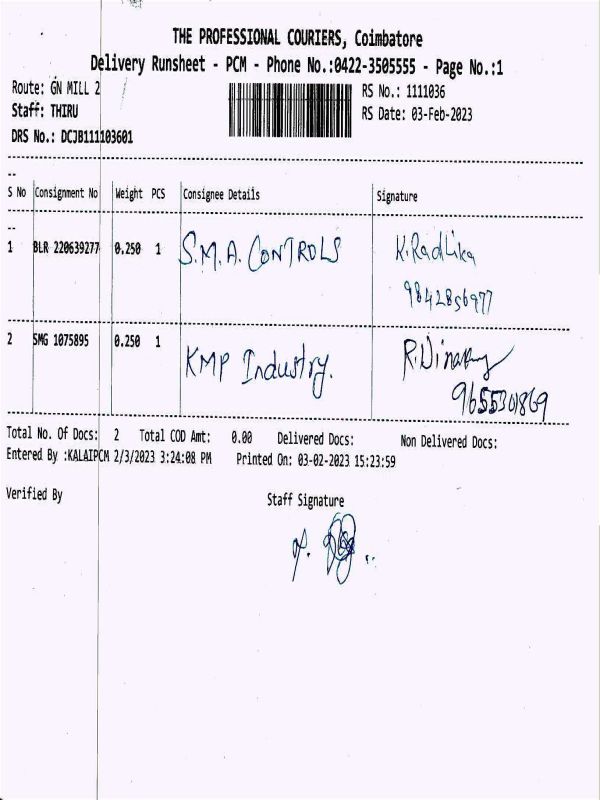 THE PROFESSIONAL COURIERS, Coimbatore
Delivery Runsheet - PCM - Phone No.:0422-3505555 - Page No.:1
Route: GN MILL 2
RS No.: 1111036
Staff: THIRU
RS Date: 03-Feb-2023
DRS No.: DCJB111103601
S No Consignment No Weight PCS Consignee Details Signature
1 BLR 220639277 0.250 1 S.M.A. CONTROLS K.Radhika
9842856977
2 SMG 1075895 0.250 1 KMP Industry. R.
9655301869
Total No. Of Docs: 2 Total COD Amt: 0.00 Delivered Docs: Non Delivered Docs:
Entered By :KALAIPCM 2/3/2023 3:24:08 PM Printed On: 03-02-2023 15:23:59
Verified By Staff Signature